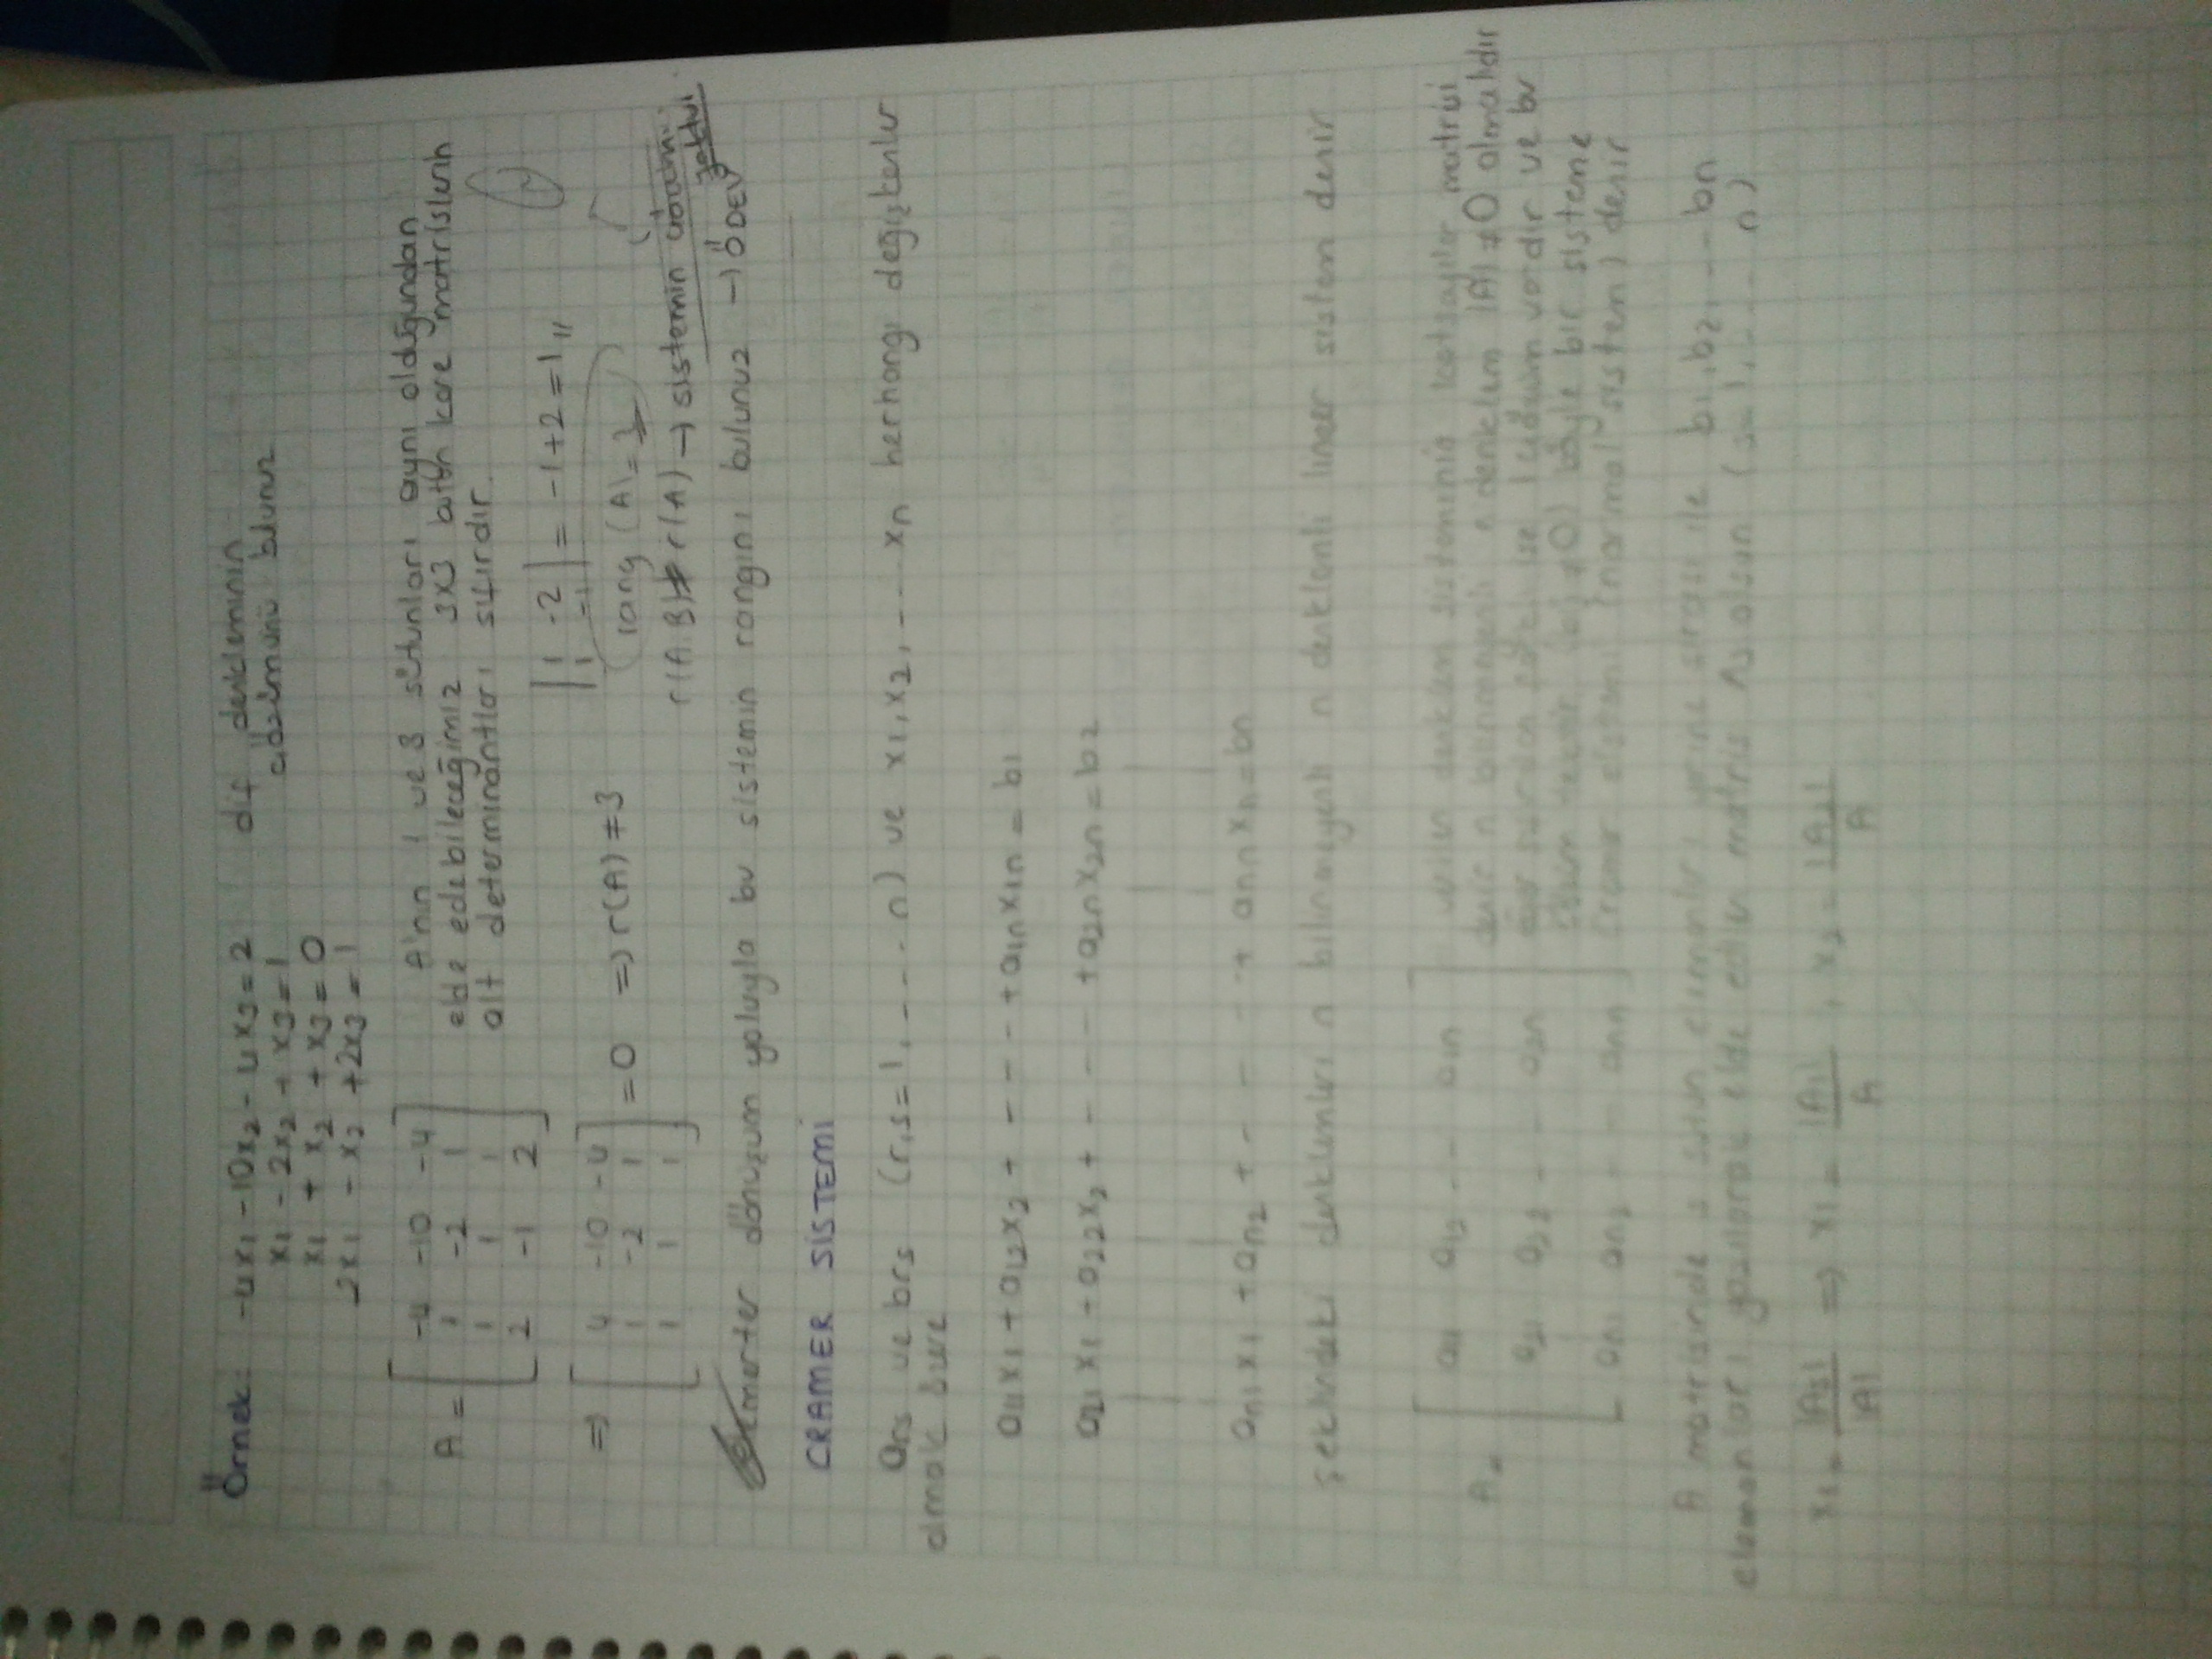 Örnek: -4x1 - 10x2 - 4x3 = 2 dif denkleminin
x1 - 2x2 + x3 = 1 çözümünü bulunuz
x1 + x2 + x3 = 0
2x1 - x2 + 2x3 = 1
A = [ -4 -10 -4 A'nın 1 ve 3 sütunları aynı olduğundan
1 -2 1 elde edebileceğimiz 3x3 bütün kare matrislerin
1 1 1 alt determinantları sıfırdır.
2 -1 2 ]
| 1 -2 | = -1+2 = 1 //
1 -1
⇒ [ 4 -10 -4
1 -2 1 = 0 ⇒ r(A) ≠ 3 rang (A) =
1 1 1 ]
r(A.B) ≠ r(A) → sistemin çözümü
yoktur
Elmerter dönüşüm yoluyla bu sistemin rangını bulunuz → ÖDEV
CRAMER SİSTEMİ
ars ve brs (r,s = 1, ---- n) ve x1, x2, --- xn herhangi değişkenler
olmak üzere
a11x1 + a12x2 + - - - - + a1nx1n = b1
a21x1 + a22x2 + - - - - + a2nx2n = b2
an1x1 + an2 + - - - - + annxn = bn
şeklindeki denklemleri n bilinmeyenli n denklemli lineer sistem denir
A = [ a11 a12 -- a1n verilen denklem sisteminin katsayılar matrisi
denir n bilinmeyenli n denklem |A| ≠ 0 olmalıdır
a21 a22 - - a2n ise 1 çözüm vardır ve bu
çözüm tektir (bj ≠ 0) böyle bir sisteme
an1 an2 - - ann ] Cramer sistemi (normal sistem) denir
A matrisinde s sütun elemanları yerine sırası ile b1, b2, --- bn
elemanları yazılarak elde edilen matris As olsun (s=1, ---- n)
x1 = |As| / |A| ⇒ x1 = |A1| / A , x2 = |A2| / A